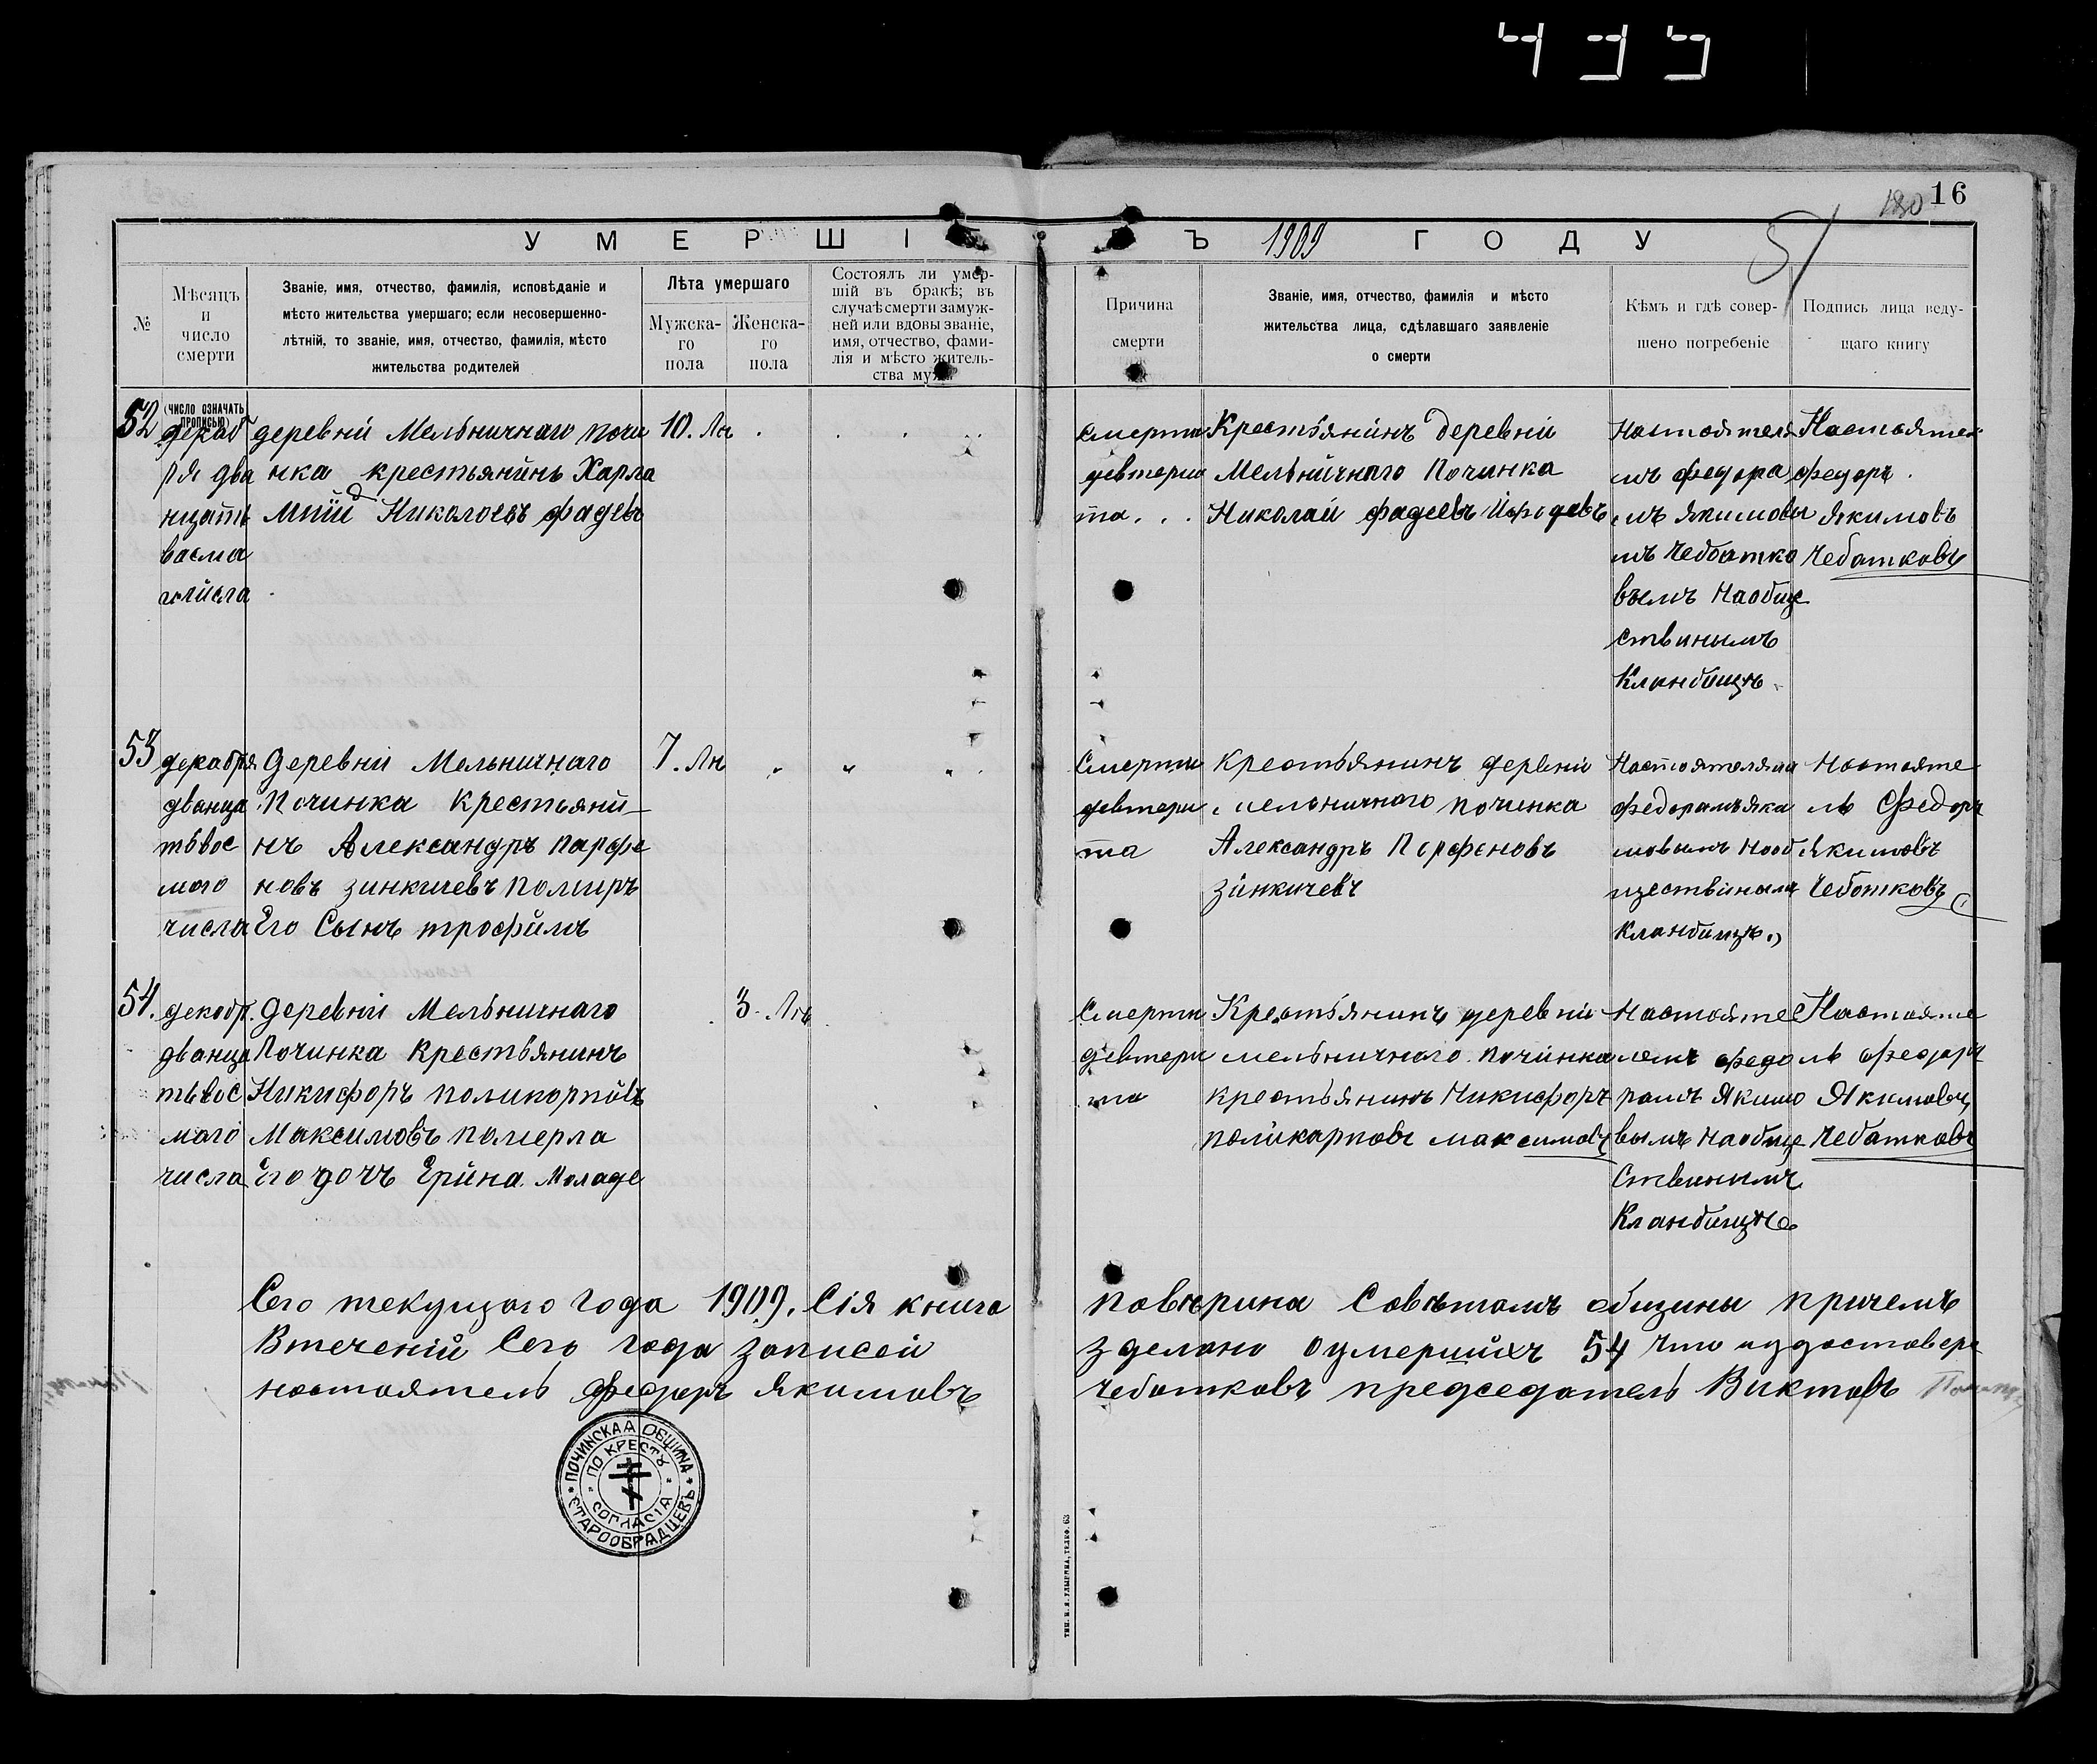 499
180 16
51
УМЕРШІЕ ВЪ 1909 ГОДУ
№
Мѣсяцъ
и
число
смерти
(число означать
прописью)
Званіе, имя, отчество, фамилія, исповѣданіе и
мѣсто жительства умершаго; если несовершенно-
лѣтній, то званіе, имя, отчество, фамилія, мѣсто
жительства родителей
Лѣта умершаго
Мужска-
го
пола
Женска-
го
пола
Состоялъ ли умер-
шій въ бракѣ; въ
случаѣ смерти замуж-
ней или вдовы званіе,
имя, отчество, фами-
лія и мѣсто житель-
ства мужа
Причина
смерти
Званіе, имя, отчество, фамилія и мѣсто
жительства лица, сдѣлавшаго заявленіе
о смерти
Кѣмъ и гдѣ совер-
шено погребеніе
Подпись лица веду-
щаго книгу
52
декаб
ря два
нцать
васма
числа
деревни Мельничнаго почи
нка крестьянинъ Харла
мпий Николоевъ фадевъ
10. Лн
Смерти
девтери
та...
Крестьянинъ деревни
Мельничнаго Починка
Николай фадеевъ
Настоятеля
мъ федора
мъ якимовы
мъ Чебатко
вымъ Наобще
ствинымъ
Кланбищъ
Настоятел
федоръ
якимовъ
Чебатковъ
53
декабря
дванца
тьвос
мого
числа
Деревни Мельничнаго
Починка Крестьяни
нъ Александръ парфе
новъ зинкичевъ помиръ
Его Сынъ трофимъ
7. Лн
Смерти
девтери
та
крестьянинъ деревни
мельничного починка
Александръ Парфеновъ
зинкичевъ
Настоятелям
федорамъяки
мовымъ Нооб
ществинымъ
кланбищъ
Настояте
ль Федоръ
Якимовъ
Чебатковъ
54.
декобр.
дванца
тьвос
маго
числа
Деревни Мельничнаго
Починка Крестьянинъ
Никифоръ поликорповъ
Максимовъ померла
Его дочъ Ерина. Моладе
3. Лнъ
Смерти
девтери
та
Крестьянинъ деревни
мельничного починка
крестьянинъ Никифоръ
поликарповъ максимовъ
Настояте
лемъ федо
рамъ Якимо
вымъ Наобще
ствинымъ
Кланбищъ
Настояте
ль Федоръ
Якимовъ
Чебатковъ
Сего текущаго года 1909. Сія книга повѣрина Совѣтамъ общины причемъ
Втеченій Сего года записей зделано оумершихъ 54 Что и достовере
настоятель федоръ Якимовъ Чебатковъ председатель Виктовъ
ПОЧИНСКАЯ ОБЩИНА
СТАРООБРЯДЦЕВЪ
ПО КРЕСТУ
СОГЛАСІЯ